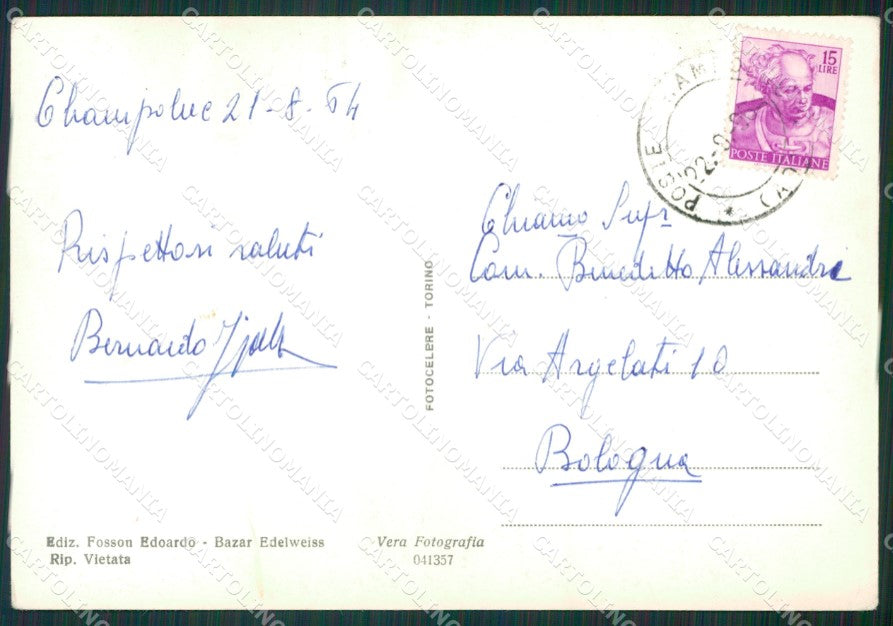 Champoluc 21-8-64
Rispettosi saluti
Bernardo
15
LIRE
POSTE ITALIANE
POSTE
22-8-
Chiamo Sigr
Com. Benedetto Alessandri
Via Argelati 10
Bologna
FOTOCELERE - TORINO
Ediz. Fosson Edoardo - Bazar Edelweiss
Rip. Vietata
Vera Fotografia
041357
CARTOLINOMANIA